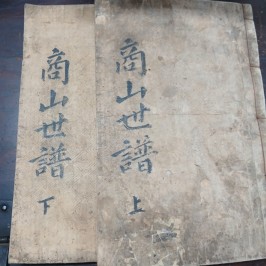 商山世譜
上
商山世譜
下